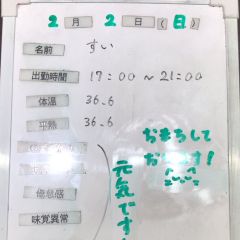 2月2日(日)
名前 すい
出勤時間 17:00~21:00
体温 36.6
平熱 36.6
倦怠感
味覚異常
元気です!
おまちして
おります!